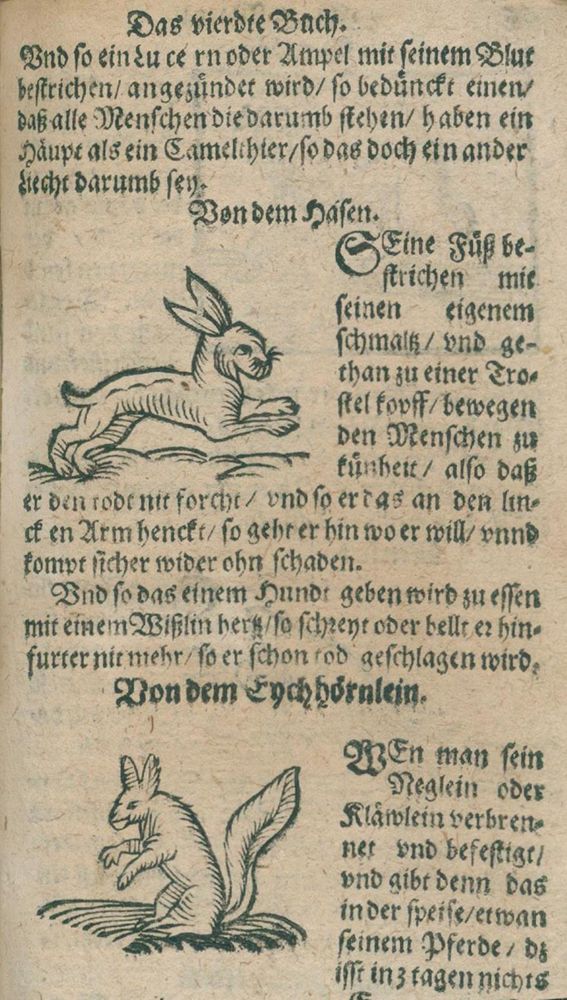 Das vierdte Buch.
Vnd so ein Lucern oder Ampel mit seinem Blut
bestrichen/ angezündet wird/ so bedünckt einen/
daß alle Menschen die darumb stehen/ haben ein
Häupt als ein Camelthier/ so das doch ein ander
Liecht darumb sey.
Von dem Hasen.
SEine Füß be-
strichen mit
seinen eigenem
schmaltz/ vnd ge-
than zu einer Tro-
stel kopff/ bewegen
den Menschen zu
künheit/ also daß
er den todt nit forcht/ vnd so er das an den lin-
cken Arm henckt/ so geht er hin wo er will/ vnnd
kompt sicher wider ohn schaden.
Vnd so das einem Hundt geben wird zu essen
mit einem Wißlin hertz/ so schreyt oder bellt er hin-
furter nit mehr/ so er schon tod geschlagen wird.
Von dem Eychhörnlein.
WEn man sein
Neglein oder
Kläwlein verbren-
net vnd befestigt/
vnd gibt denn das
in der speise/ etwan
seinem Pferde/ dz
isst in 3 tagen nichts